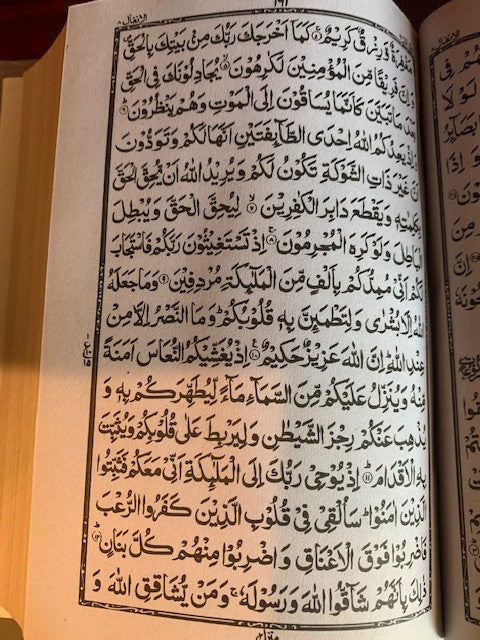 الانفال ٨
١٦١
مَّغْفِرَةٌ وَّرِزْقٌ كَرِيْمٌ ﴿۴﴾ كَمَاۤ اَخْرَجَكَ رَبُّكَ مِنْۢ بَيْتِكَ بِالْحَقِّ
وَاِنَّ فَرِيْقًا مِّنَ الْمُؤْمِنِيْنَ لَكٰرِهُوْنَ ﴿۵﴾ يُجَادِلُوْنَكَ فِى الْحَقِّ
بَعْدَ مَا تَبَيَّنَ كَاَنَّمَا يُسَاقُوْنَ اِلَى الْمَوْتِ وَهُمْ يَنْظُرُوْنَ ﴿۶﴾
وَاِذْ يَعِدُكُمُ اللّٰهُ اِحْدَى الطَّآئِفَتَيْنِ اَنَّهَا لَكُمْ وَتَوَدُّوْنَ
اَنَّ غَيْرَ ذَاتِ الشَّوْكَةِ تَكُوْنُ لَكُمْ وَيُرِيْدُ اللّٰهُ اَنْ يُّحِقَّ الْحَقَّ
بِكَلِمٰتِهٖ وَيَقْطَعَ دَابِرَ الْكٰفِرِيْنَ ﴿۷﴾ لِيُحِقَّ الْحَقَّ وَيُبْطِلَ
الْبَاطِلَ وَلَوْ كَرِهَ الْمُجْرِمُوْنَ ﴿۸﴾ اِذْ تَسْتَغِيْثُوْنَ رَبَّكُمْ فَاسْتَجَابَ
لَكُمْ اَنِّىْ مُمِدُّكُمْ بِاَلْفٍ مِّنَ الْمَلٰٓئِكَةِ مُرْدِفِيْنَ ﴿۹﴾ وَمَا جَعَلَهُ
اللّٰهُ اِلَّا بُشْرٰى وَلِتَطْمَئِنَّ بِهٖ قُلُوْبُكُمْ ؕ وَمَا النَّصْرُ اِلَّا مِنْ
عِنْدِ اللّٰهِ ؕ اِنَّ اللّٰهَ عَزِيْزٌ حَكِيْمٌ ﴿۱۰﴾ اِذْ يُغَشِّيْكُمُ النُّعَاسَ اَمَنَةً
مِّنْهُ وَيُنَزِّلُ عَلَيْكُمْ مِّنَ السَّمَآءِ مَآءً لِّيُطَهِّرَكُمْ بِهٖ وَ
يُذْهِبَ عَنْكُمْ رِجْزَ الشَّيْطٰنِ وَلِيَرْبِطَ عَلٰى قُلُوْبِكُمْ وَيُثَبِّتَ
بِهِ الْاَقْدَامَ ﴿۱۱﴾ اِذْ يُوْحِىْ رَبُّكَ اِلَى الْمَلٰٓئِكَةِ اَنِّىْ مَعَكُمْ فَثَبِّتُوا
الَّذِيْنَ اٰمَنُوْا ؕ سَاُلْقِىْ فِىْ قُلُوْبِ الَّذِيْنَ كَفَرُوا الرُّعْبَ
فَاضْرِبُوْا فَوْقَ الْاَعْنَاقِ وَاضْرِبُوْا مِنْهُمْ كُلَّ بَنَانٍ ﴿۱۲﴾
ذٰلِكَ بِاَنَّهُمْ شَآقُّوا اللّٰهَ وَرَسُوْلَهٗ ۚ وَمَنْ يُّشَاقِقِ اللّٰهَ وَ